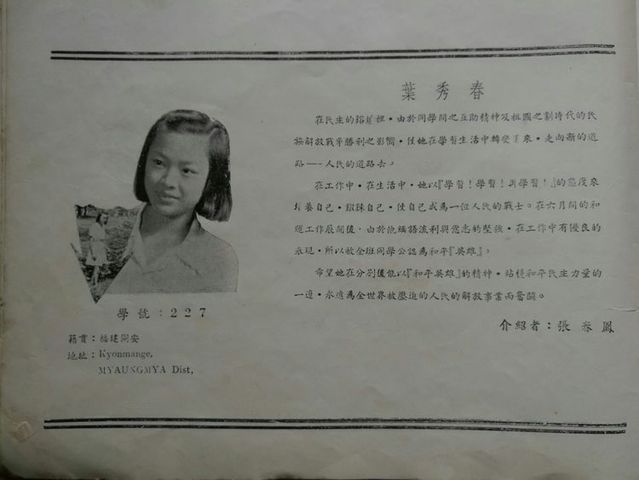 葉秀春
在民生的搖籃裡，由於同學間之互助精神及祖國之劃時代的民
族解放戰爭勝利之影響，使她在學習生活中轉變了來，走向新的道
路——人民的道路去。
在工作中，在生活中，她以『學習！學習！再學習！』的態度來
培養自己，鍛鍊自己，使自己成為一位人民的戰士。在六月間的和
運工作展開後，由於他緬語流利與意志的堅強，在工作中有優良的
表現，所以被全班同學公認為和平『英雄』。
希望她在分別後能以『和平英雄』的精神，站穩和平民主力量的
一邊，永遠為全世界被壓迫的人民的解放事業而奮鬪。
介紹者：張 鳳
學號：227
籍貫：福建同安
地址：Kyonmange,
MYAUNGMYA Dist,